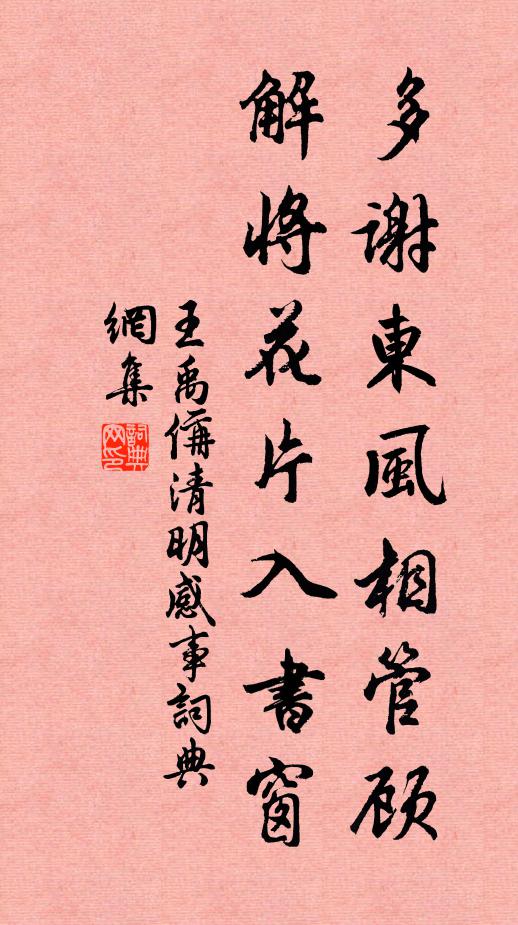 多謝東風相管顾
解將花片入書窗
王禹偁清明感事詞典
網集
詞典
网印